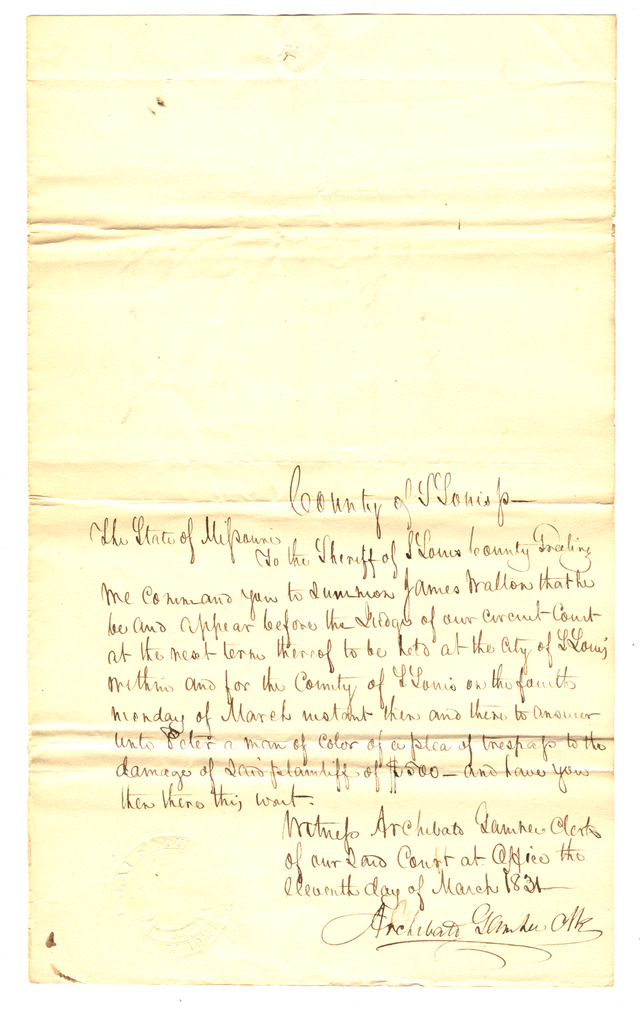 County of St Louis ss
The State of Missouri
To the Sheriff of St Louis County Greeting
We command you to Summon James Walton that he
be and appear before the Judge of our circuit Court
at the next term thereof to be held at the City of St Louis
within and for the County of St Louis on the fourth
monday of March instant then and there to answer
unto Peter a man of color of a plea of trespass to the
damage of said plaintiff of $500 — and have you
then there this writ.
Witness Archibald Gamble Clerk
of our said Court at Office the
eleventh day of March 1831
Archibald Gamble Clk